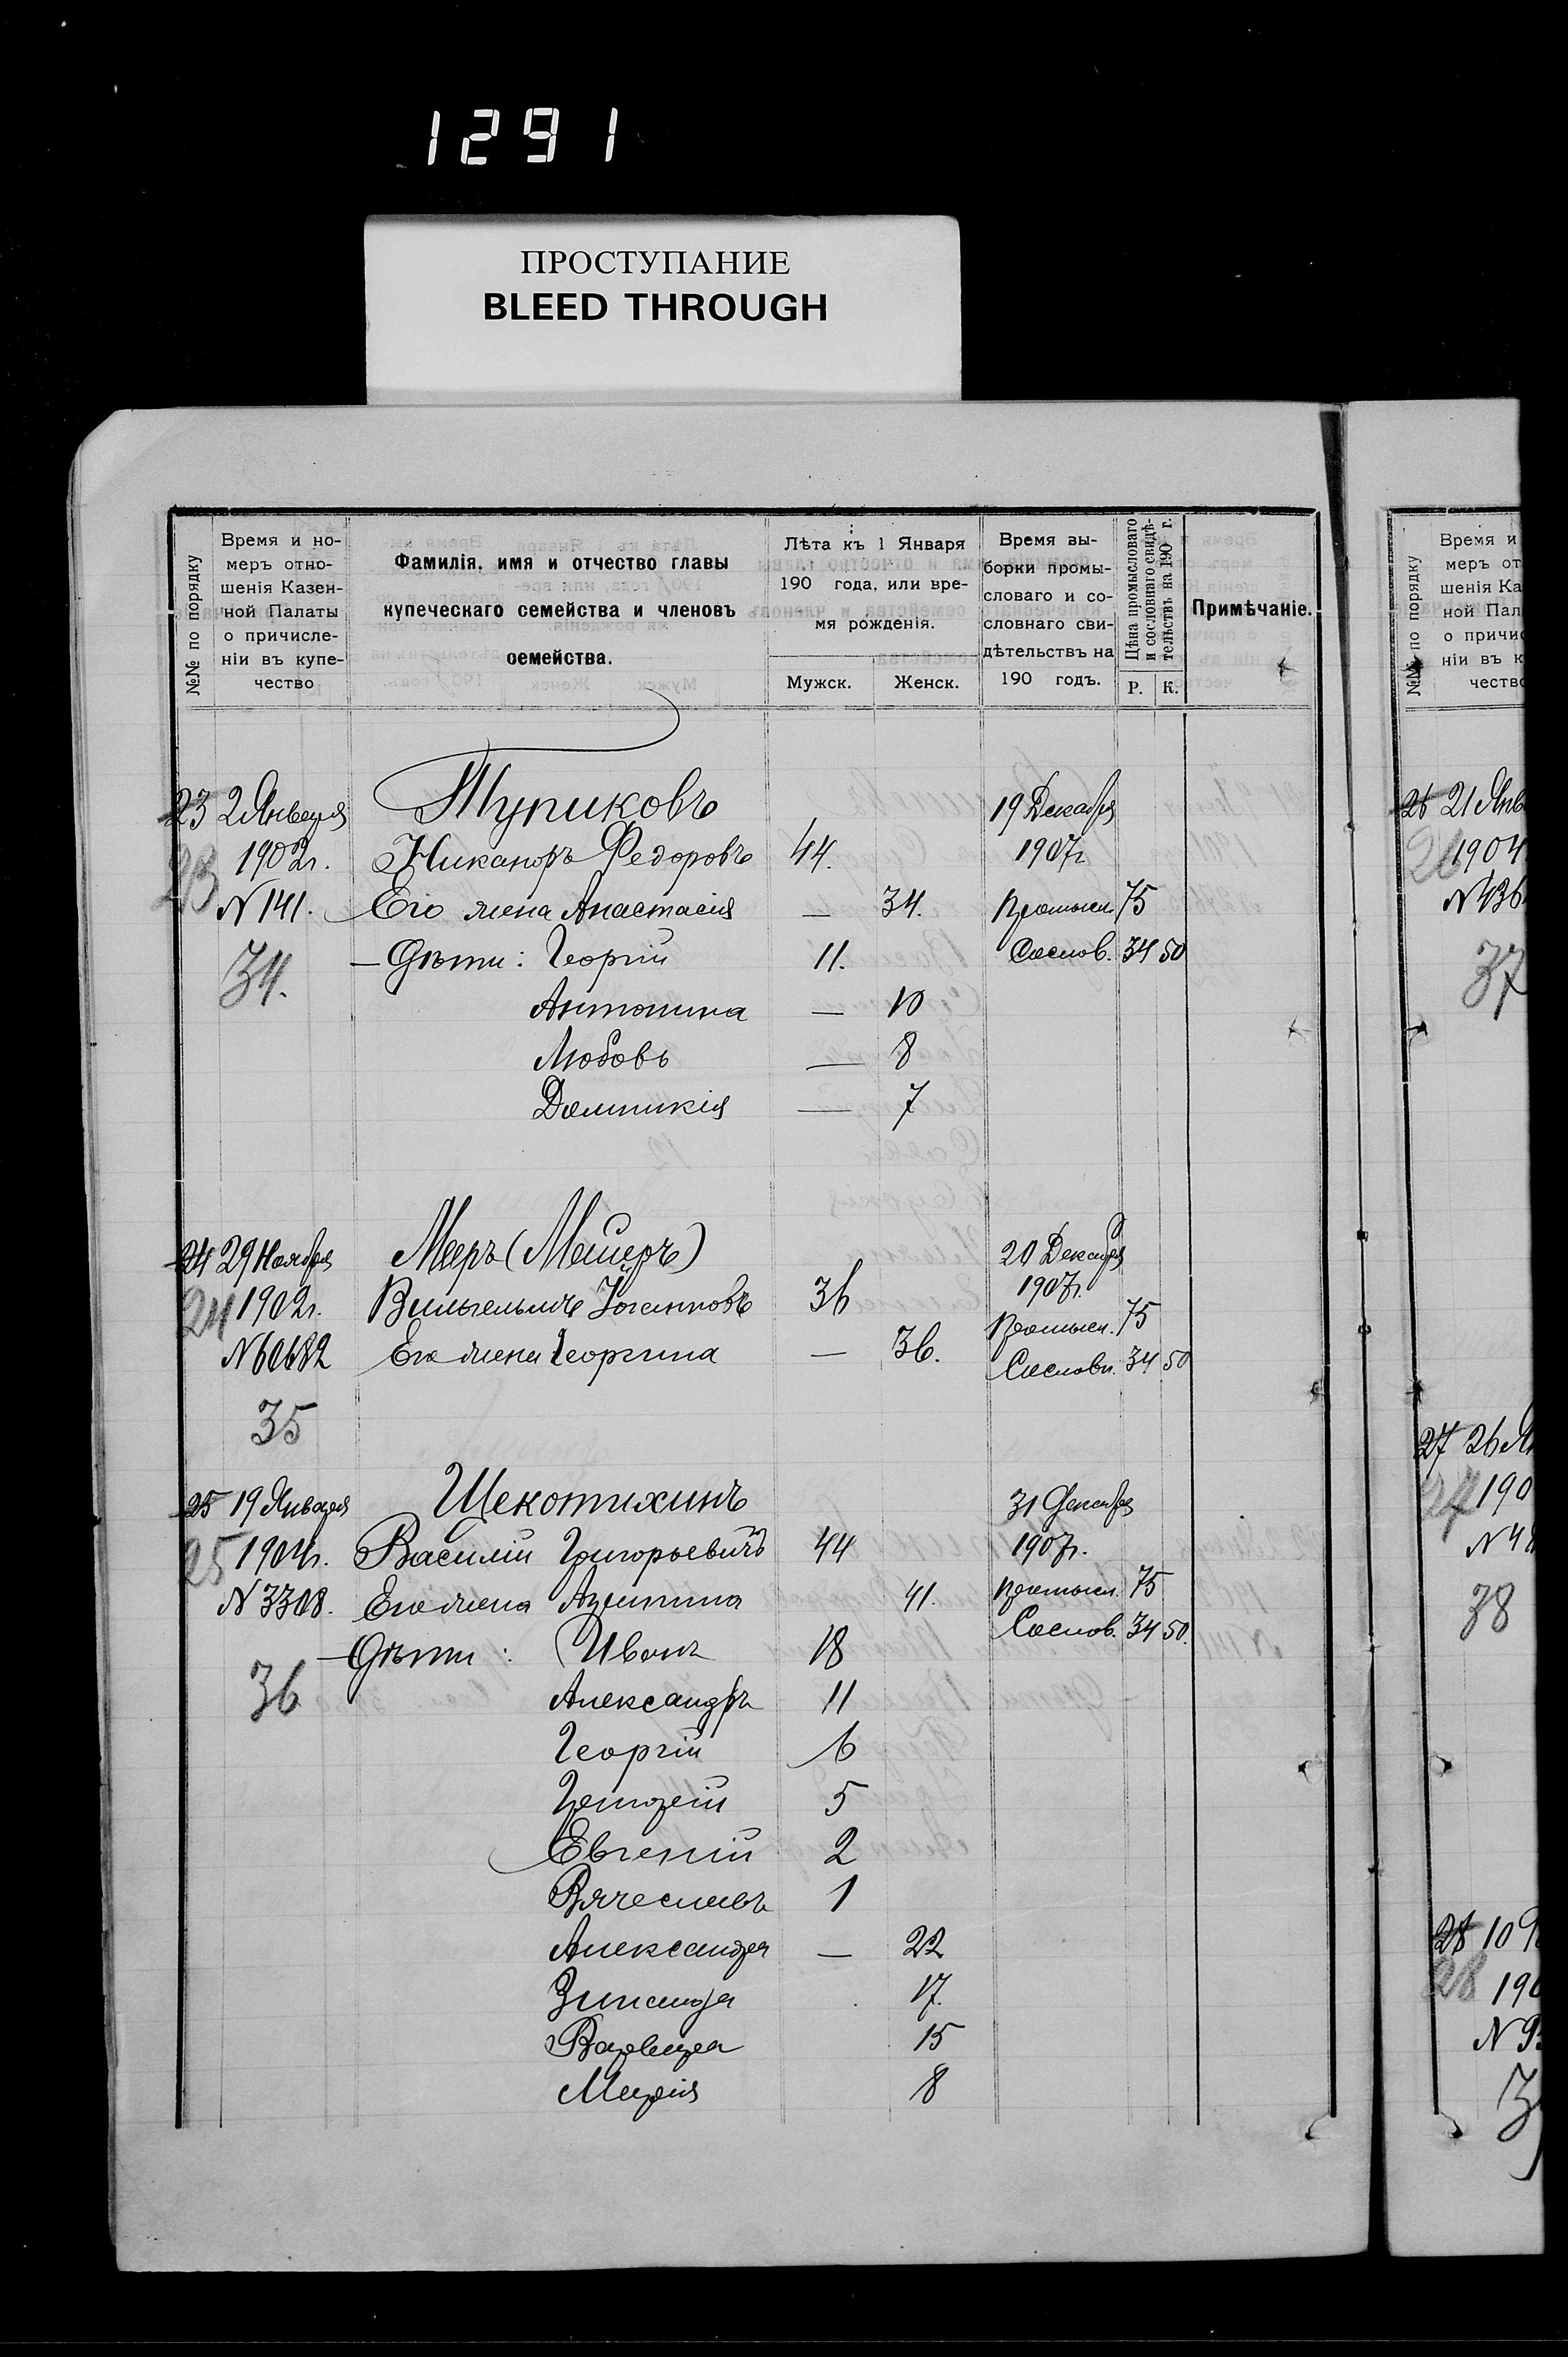 1291
ПРОСТУПАНИЕ
BLEED THROUGH
№№ по порядку
Время и но-
меръ отно-
шенія Казен-
ной Палаты
о причисле-
ніи въ купе-
чество
Фамилія, имя и отчество главы
купеческаго семейства и членовъ
семейства.
Лѣта къ 1 Января
190 года, или вре-
мя рожденія.
Мужск. Женск.
Время вы-
борки промы-
словаго и со-
словнаго сви-
дѣтельствъ на
190 годъ.
Цѣна промысловаго
и сословнаго свидѣ-
тельствъ на 190 г.
Р. К.
Примѣчаніе.
23 2 Января Тупиковъ 19 Декабря
23 1902г. Никаноръ Федоровъ 44. 1907г.
N 141. Его жена Анастасія — 34. Промысл. 75
34. — Дѣти: Георгій 11. Сослов. 34 50
Антонина — 10
Любовь — 8
Домникія — 7
24 29 Ноября Меръ (Мейеръ) 20 Декабря
24 1902г. Вильгельмъ Іоганновъ 36 1907г.
N 60682 Его жена Георгина — 36. Промысл. 75
Сословн. 34 50
35
25 19 Января Щекотихинъ 31 Декабря
25 1904г. Василій Григорьевичъ 44 1907г.
N 3308. Его жена 41. Промысл. 75
— Дѣти: Иванъ 18 Сослов. 34 50.
36 Александръ 11
Георгій 6
5
Евгеній 2
Вячеславъ 1
Александра — 22
Зинаида 17.
Варвара 15
Марія 8
№№ по порядку
Время и
меръ от
шенія Ка
ной Пал
о причис
ніи въ к
чество
26 21 Янв
26 1904
N 436
37
27 26 Ян
27 190
N 48
38
28 10
28 190
N 9
3